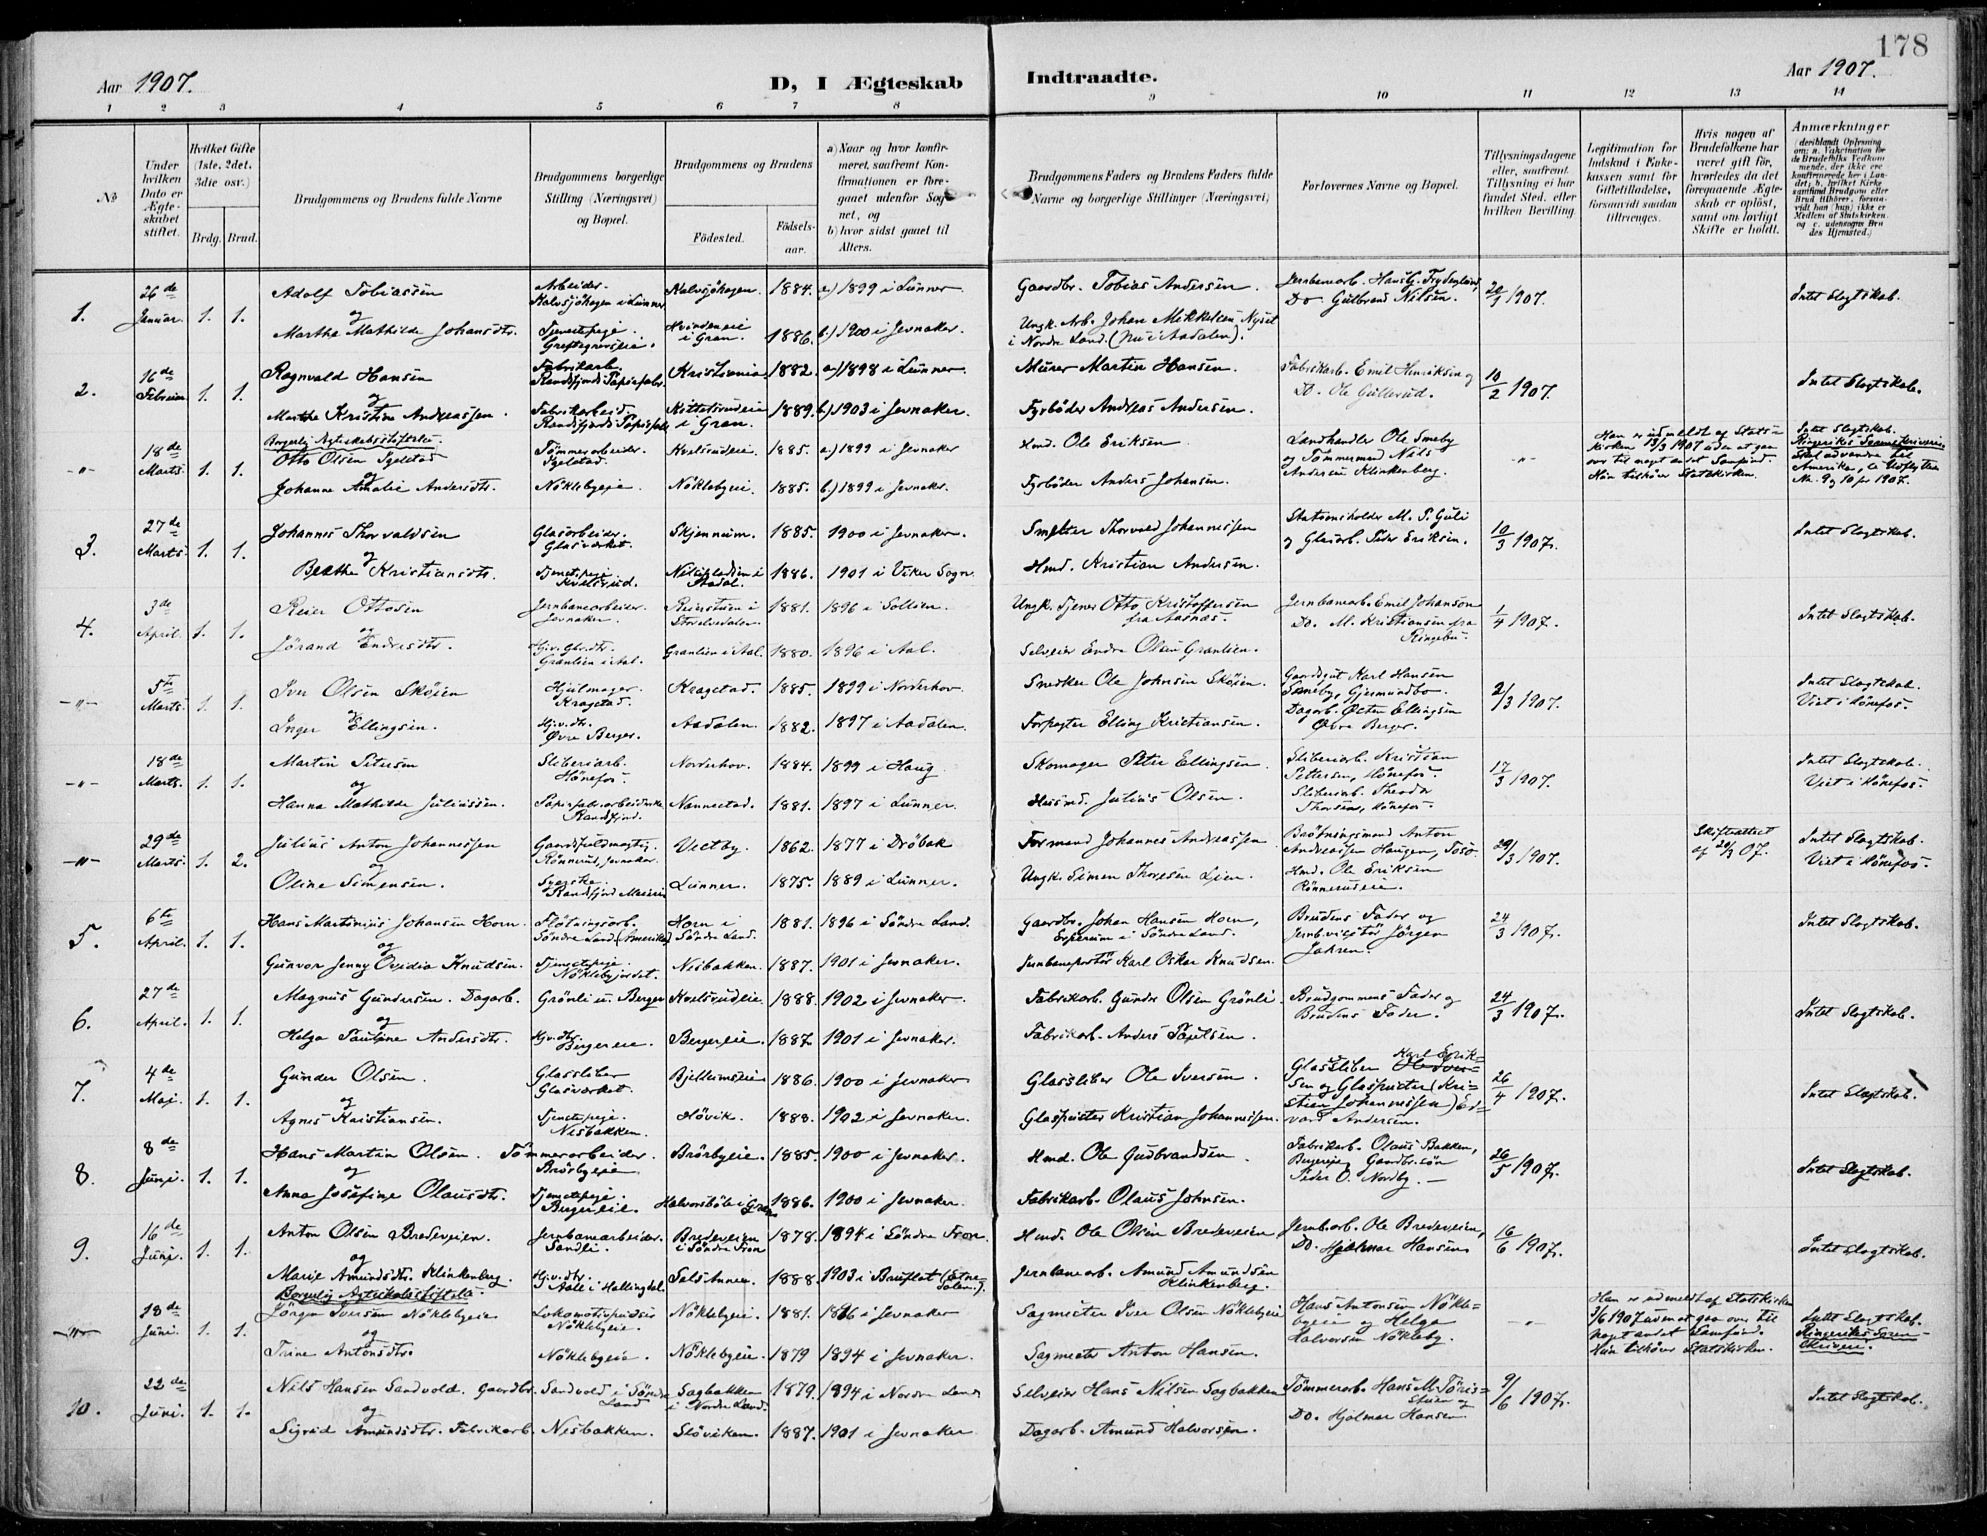 178
Aar 1907.
D, I Ægteskab
Indtraadte.
Aar 1907.
1 2 3 4 5 6 7 8 9 10 11 12 13 14
No
Under hvilken Dato er Ægteskabet stiftet.
Hvilket Gifte (1ste, 2det, 3die osv.)
Brdg. Brud.
Brudgommens og Brudens fulde Navne
Brudgommens borgerlige Stilling (Næringsvei) og Bopæl.
Brudgommens og Brudens
Fødested.
Fødselsaar.
a) Naar og hvor konfirmeret, saafremt Konfirmationen er foregaaet udenfor Sognet, og
b) hvor sidst gaaet til Alters.
Brudgommens Faders og Brudens Faders fulde Navne og borgerlige Stillinger (Næringsvei)
Forlovernes Navne og Bopæl.
Tillysningsdagene eller, saafremt Tillysning ei har fundet Sted, efter hvilken Bevilling.
Legitimation for Indskud i Enkekassen samt for Giftetilladelse, forsaavidt saadan tiltrænges.
Hvis nogen af Brudefolkene har været gift før, hvorledes da det foregaaende Ægteskab er opløst, samt om lovligt Skifte er holdt.
Anmærkninger
1. 26de Januar. 1. 1.
Adolf Tobiassen Arbeider. Kalvsjøhagen i Lunner Kalvsjøhagen. 1884. a) 1899 i Lunner Gaardbr. Tobias Andersen. Jernbanearb. Hans G. Frydenlund, Do Gulbrand Nilsen. 20/1 1907. Intet Slegtskab.
og
Marthe Mathilde Johansdtr. Tjenestepige. Hvindeneie i Gran. 1886. b) 1900 i Jevnaker. Ungk. Arb. Johan Mikkelsen Nyset i Nordre Land. (nu i Aadalen).
2. 16de Februar 1. 1.
Ragnvald Hansen Fabrikarb. Randsfjords Papirfabr. Kristiania. 1882. a) 1898 i Lunner Murer Martin Hansen. Fabrikarb. Emil Henriksen og Do. Ole Gullerud. 10/2 1907. Intet Slegtskab.
og
Marthe Kristine Andreassen. Fabrikarbeid. Randsfjords Papirfabr. i Gran. 1889. b) 1903 i Jevnaker. Fyrbøder Andreas Andersen.
-"- 18de Marts. 1. 1.
Borgerlig Ægteskabsstiftelse.
Otto Olsen Tømmerarbeider. 1885. a) 1899 i Jevnaker Hmd. Ole Eriksen Landhandler Ole Smeby og Tømmermand Nils Andersen Klinkenberg. -"- Han er udmeldt af Statskirken 13/3 1907 uden at gaa over til noget andet Samfund. Hun tilhører Statskirken. Intet Slegtskab. Ringerikes Sorenskriveri Skal udvandre til Amerika, Nr. 9 og 10 for 1907.
og
Johanne Amalie Andersdtr. Nøklebyeie. Nøklebyeie. 1885. b) 1899 i Jevnaker. Fyrbøder Anders Johansen.
3. 27de Marts. 1. 1.
Johannes Thorvaldsen Glasarbeider. Glasværket. Skjennum. 1885. 1900 i Jevnaker. Smelter Thorvald Johannessen Stationsholder M. P. Guli og Glasarb. Peder Eriksen. 10/3 1907. Intet Slegtskab.
og
Berthe Kristiansdtr. Tjenestepige 1886. 1901 i Viker Sogn. Hmd. Kristian Andersen.
4. 3de April. 1. 1.
Reier Ottosen Jernbanearbeider. Jevnaker. Storelvedalen 1881. 1896 i Sollien. Ungk. Tjener Otto Kristoffersen fra Aasnæs. Jernbanearb. Emil Johanson Do. M. Kristiansen fra Ringebu. 1/4 1907. Intet Slegtskab.
og
Jørand Endresdtr. Hjv. Gbr.dtr. Grønlien i Aal. Grønlien i Aal. 1880. 1896 i Aal. Selveier Endre Olsen Grønlien.
-"- 5te Marts. 1. 1.
Iver Olsen Skøien Hjulmager. Kragstad. Kragstad. 1885. 1899 i Norderhov. Snedker Ole Johnsen Skøien. Gaardgut Karl Hansen Smeby, Gjermundbo. Dagarb. Østen Ellingsen Øvre Berger. 2/3 1907. Intet Slegtskab. Viet i Hønefos.
og
Inger Ellingsen. Hjv. dtr. Øvre Berger. Aadalen. 1882. 1897 i Aadalen. Forpagter Elling Kristiansen.
-"- 18de Marts. 1. 1.
Martin Petersen Sliberiarb. Hønefos. Norderhov. 1884. 1899 i Haug. Skomager Peter Ellingsen. Sliberiarb. Kristian Pettersen, Hønefos. Sliberiarb. Theodor Thorsen, Hønefos. 17/3 1907. Intet Slegtskab. Viet i Hønefos.
og
Hanna Mathilde Juliussen. Papirfabr.arbeiderske Randsfjord. Nannestad. 1881. 1897 i Lunner. Husmd. Julius Olsen.
-"- 29de Marts. 1. 2.
Julius Anton Johannessen Gaardsfuldmægtig. Rønnerud, Jevnaker. Vestby. 1862. 1877 i Drøbak Formand Johannes Andreassen Anton Andreassen Haugen, Hmd. Ole Eriksen Rønnerudeie. 29/3 1907. Skifteattest af 20/3 07. Intet Slegtskab. Viet i Hønefos.
og
Oline Simensen. Randsfjord Meieri Lunner. 1875. 1889 i Lunner. Ungk. Simen Thoresen Lien.
5. 6te April. 1. 1.
Hans Martinius Johansen Horn. Fløtningsarb. Søndre Land. (Amerika) Horn i Søndre Land. 1881. 1896 i Søndre Land. Gaardbr. Johan Hansen Horn, i Søndre Land. Brudens Fader og Jørgen Jahren. 24/3 1907. Intet Slegtskab.
og
Gunvor Jenny Ovidia Knudsen. Tjenestepige. Nøklebyjordet. Nesbakken. 1887. 1901 i Jevnaker. Jernbaneportør Karl Oskar Knudsen.
6. 27de April. 1. 1.
Magnus Gundersen. Dagarb. Grønli u. Berger 1888. 1902 i Jevnaker. Fabrikarb. Gunder Olsen Grønli. Brudgommens Fader og Brudens Fader. 24/3 1907. Intet Slegtskab.
og
Helga Pauline Andersdtr. Hjv. dtr. Bergereie. Bergereie. 1887. 1901 i Jevnaker. Fabrikarb. Anders Paulsen.
7. 4de Maj. 1. 1.
Gunder Olsen. Glassliber Glasværket. 1886. 1900 i Jevnaker Glassliber Ole Iversen. Glassliber Karl Eriksen og Glaspuster (Kristian Johannessen) Edvard Andersen. 26/4 1907. Intet Slegtskab.
og
Agnes Kristiansen. Tjenestepige. Nesbakken. Høvik. 1888. 1902 i Jevnaker. Glaspuster Kristian Johannessen.
8. 8de Juni. 1. 1.
Hans Martin Olsen. Tømmerarbeider. Brørbyeie. Brørbyeie. 1885. 1900 i Jevnaker. Hmd. Ole Gudbrandsen. Fabrikarb. Olaus Bakken, Bergereie, Gaardbr.søn Peder O. Nordby. 26/5 1907. Intet Slegtskab.
og
Anna Josefine Olausdtr. Tjenestepige. Bergereie. Halvorsbøle i Gran 1886. 1900 i Jevnaker. Fabrikarb. Olaus Johnsen.
9. 16de Juni. 1. 1.
Anton Olsen Bredeveien. Jernbanearbeider. Sandli. Bredeveien i Søndre Fron 1878. 1894 i Søndre Fron. Hmd. Ole Olsen Bredeveien Jernb.arb. Ole Bredeveien, Do. Hjalmar Hansen. 16/6 1907. Intet Slegtskab.
og
Marie Amundsdtr. Klinkenberg. Hjv. dtr. Aale i Hallingdal. 1888. 1903 i Bruflat (Etnedalen). Jernbanearb. Amund Amundsen Klinkenberg.
-"- 18de Juni. 1. 1.
Borgerlig Ægteskabsstiftelse
Jørgen Iversen Nøklebyeie Lokomotivpudser Nøklebyeie. Nøklebyeie. 1881. 1896 i Jevnaker Sagmester Iver Olsen Nøklebyeie Hans Antonsen Nøklebyeie og Helge Halvorsen Nøkleby. -"- Han er udmeldt af Statskirken 3/6 1907 uden at gaa over til noget andet Samfund. Hun tilhører Statskirken. Intet Slegtskab. Ringerikes Sorenskriveri.
og
Trine Antonsdtr. Nøklebyeie. Nøklebyeie. 1879 1894 i Jevnaker. Sagmester Anton Hansen.
10. 22de Juni. 1. 1.
Nils Hansen Sandvold. Gaardbr. Sandvold i Søndre Land Sagbakken i Nordre Land. 1879. 1894 i Nordre Land Selveier Hans Nilsen Sagbakken Tømmerarb. Hans M. og Do. Hjalmar Hansen. 9/6 1907. Intet Slegtskab.
og
Sigrid Amundsdtr. Fabrikarb. Nesbakken. Støviken. 1887. 1901 i Jevnaker Dagarb. Amund Halvorsen.